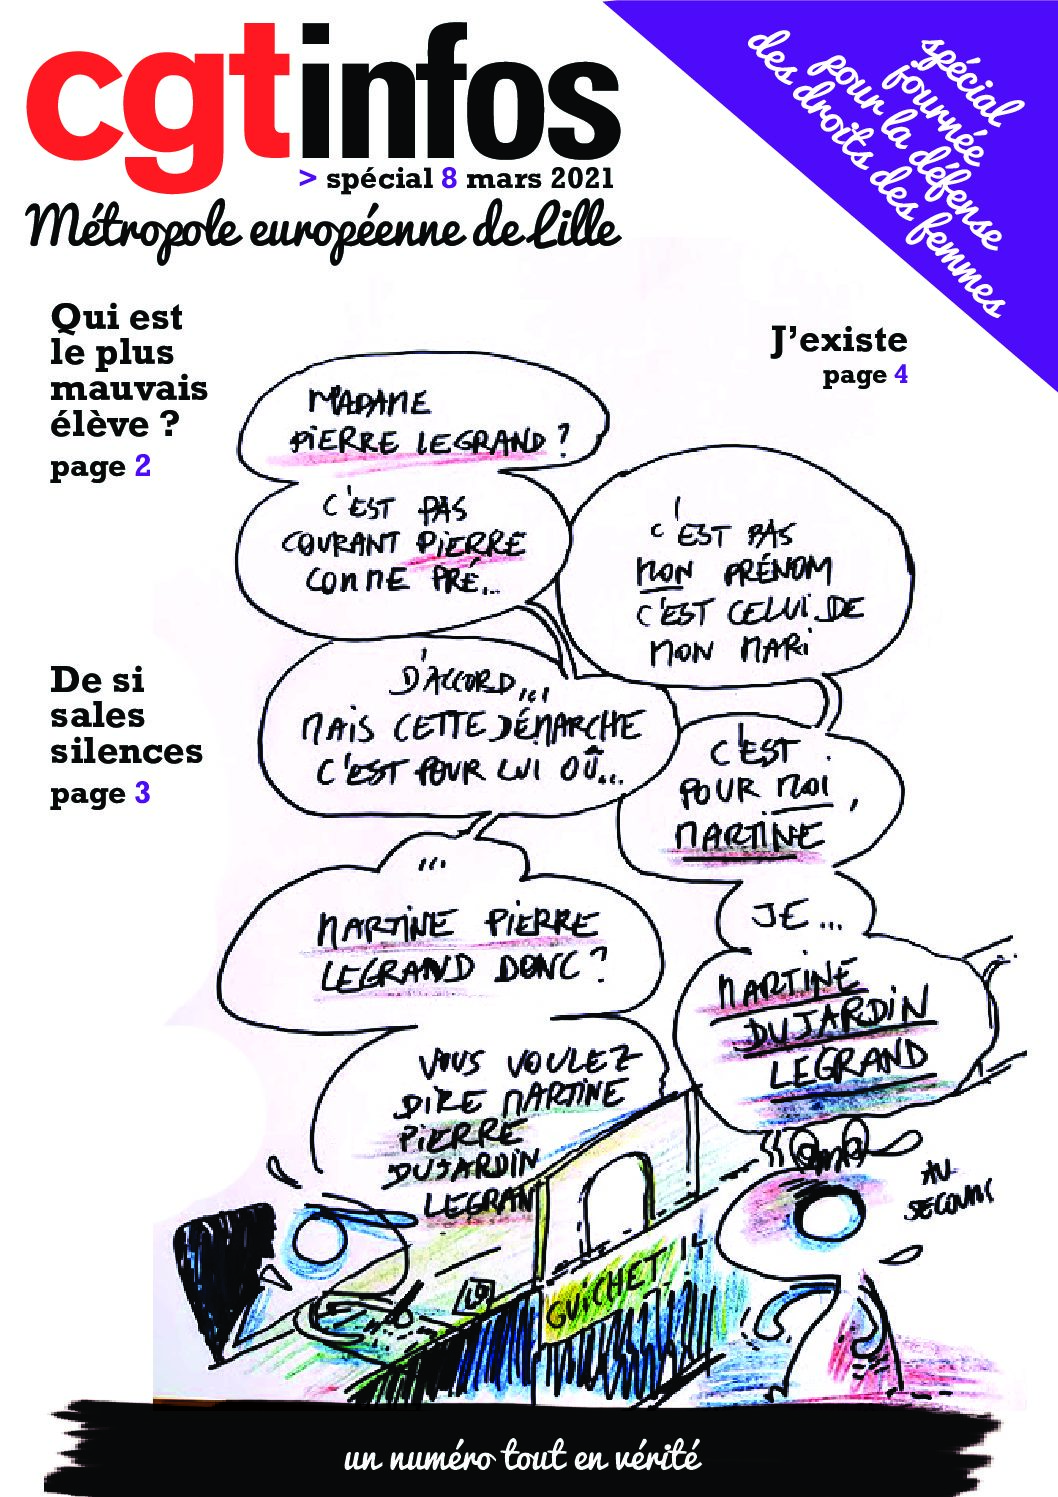 cgtinfos
> spécial 8 mars 2021
Métropole européenne de Lille
spécial
journée
pour la défense
des droits des femmes
Qui est
le plus
mauvais
élève ?
page 2
J'existe
page 4
De si
sales
silences
page 3
MADAME
PIERRE LEGRAND ?
C'EST PAS
COURANT PIERRE
COMME PRÉ...
C'EST PAS
MON PRÉNOM
C'EST CELUI DE
MON MARI
D'ACCORD...
MAIS CETTE DÉMARCHE
C'EST POUR LUI OÛ...
C'EST
POUR MOI,
MARTINE
...
MARTINE PIERRE
LEGRAND DONC ?
JE...
MARTINE
DUJARDIN
LEGRAND
VOUS VOULEZ
DIRE MARTINE
PIERRE
DUJARDIN
LEGRANT
AU
SECOURS
GUICHET 14
un numéro tout en vérité